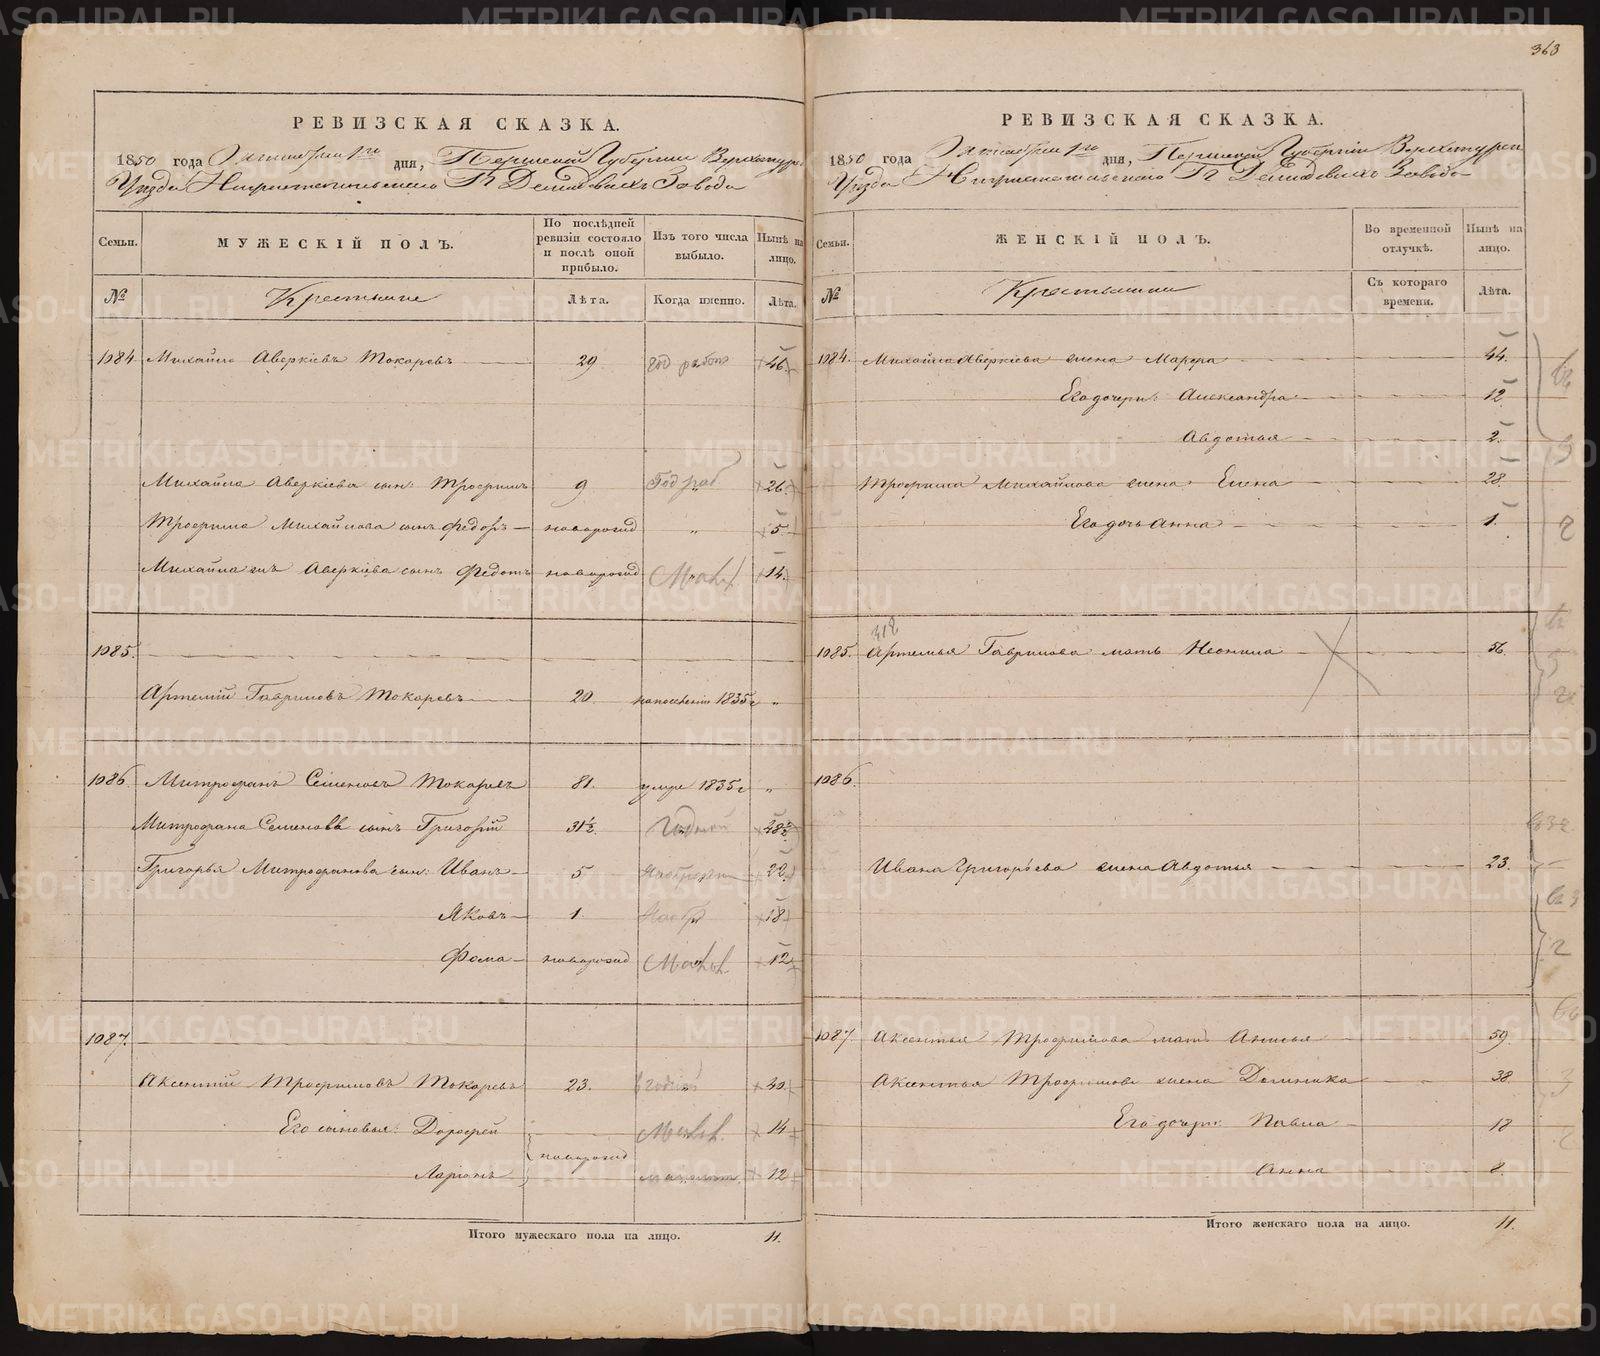 363
РЕВИЗСКАЯ СКАЗКА.
1850 года Октября 1го дня, Пермской Губернии Верхотурс.
Уезда Нижнетагильскаго Гг Демидовыхъ Завода
Семьи.
МУЖЕСКІЙ ПОЛЪ.
По послѣдней ревизіи состояло и послѣ оной прибыло.
Изъ того числа выбыло.
Нынѣ на лицо.
№
Крестьяне
Лѣта.
Когда именно.
Лѣта.
1084. Михайло Аверкіевъ Токаревъ 29 46.
Михайла Аверкіева сын: Трофимъ 9 Год раб 26.
Трофима Михайлова сынъ Федотъ новорожд „ 5
Михайла Аверкіева сынъ Федотъ новорожд 14.
1085.
Артемій Гавриловъ Токаревъ 20. 1835 г „
1086. Митрофанъ Семеновъ Токаревъ 81. умре 1835 г „
Митрофана Семенова сынъ Григорій 31½. 48½
Григорья Митрофанова сын: Иванъ 5 22.
Яковъ 1. 18
Фома новорожд 12
1087.
Аксентій Трофимовъ Токаревъ 23. 40.
Его сыновья: Дорофей 14
новорожд
Ларіонъ 12
Итого мужескаго пола на лицо. 11.
РЕВИЗСКАЯ СКАЗКА.
1850 года Октября 1го дня, Пермской Губерніи Верхотурск
Уезда Нижнетагильскаго Гг Демидовыхъ Завода
Семьи.
ЖЕНСКІЙ ПОЛЪ.
Во временной отлучкѣ.
Нынѣ на лицо.
№
Крестьянки
Съ котораго времени.
Лѣта.
1084. Михайла Аверкіева жена Марфа 44.
Его дочери: Александра 12
Авдотья 2.
Трофима Михайлова жена Елена 28.
Его дочь Анна 1.
1085. Артемья Гаврилова мать Неонила 56.
1086.
Ивана Григорьева жена Авдотья 23.
1087. Аксентья Трофимова мат. Анисья 59.
Аксентья Трофимова жена Домника 38.
Его дочери: Павла 18
Анна 8.
Итого женскаго пола на лицо. 11.
METRIKI.GASO-URAL.RU